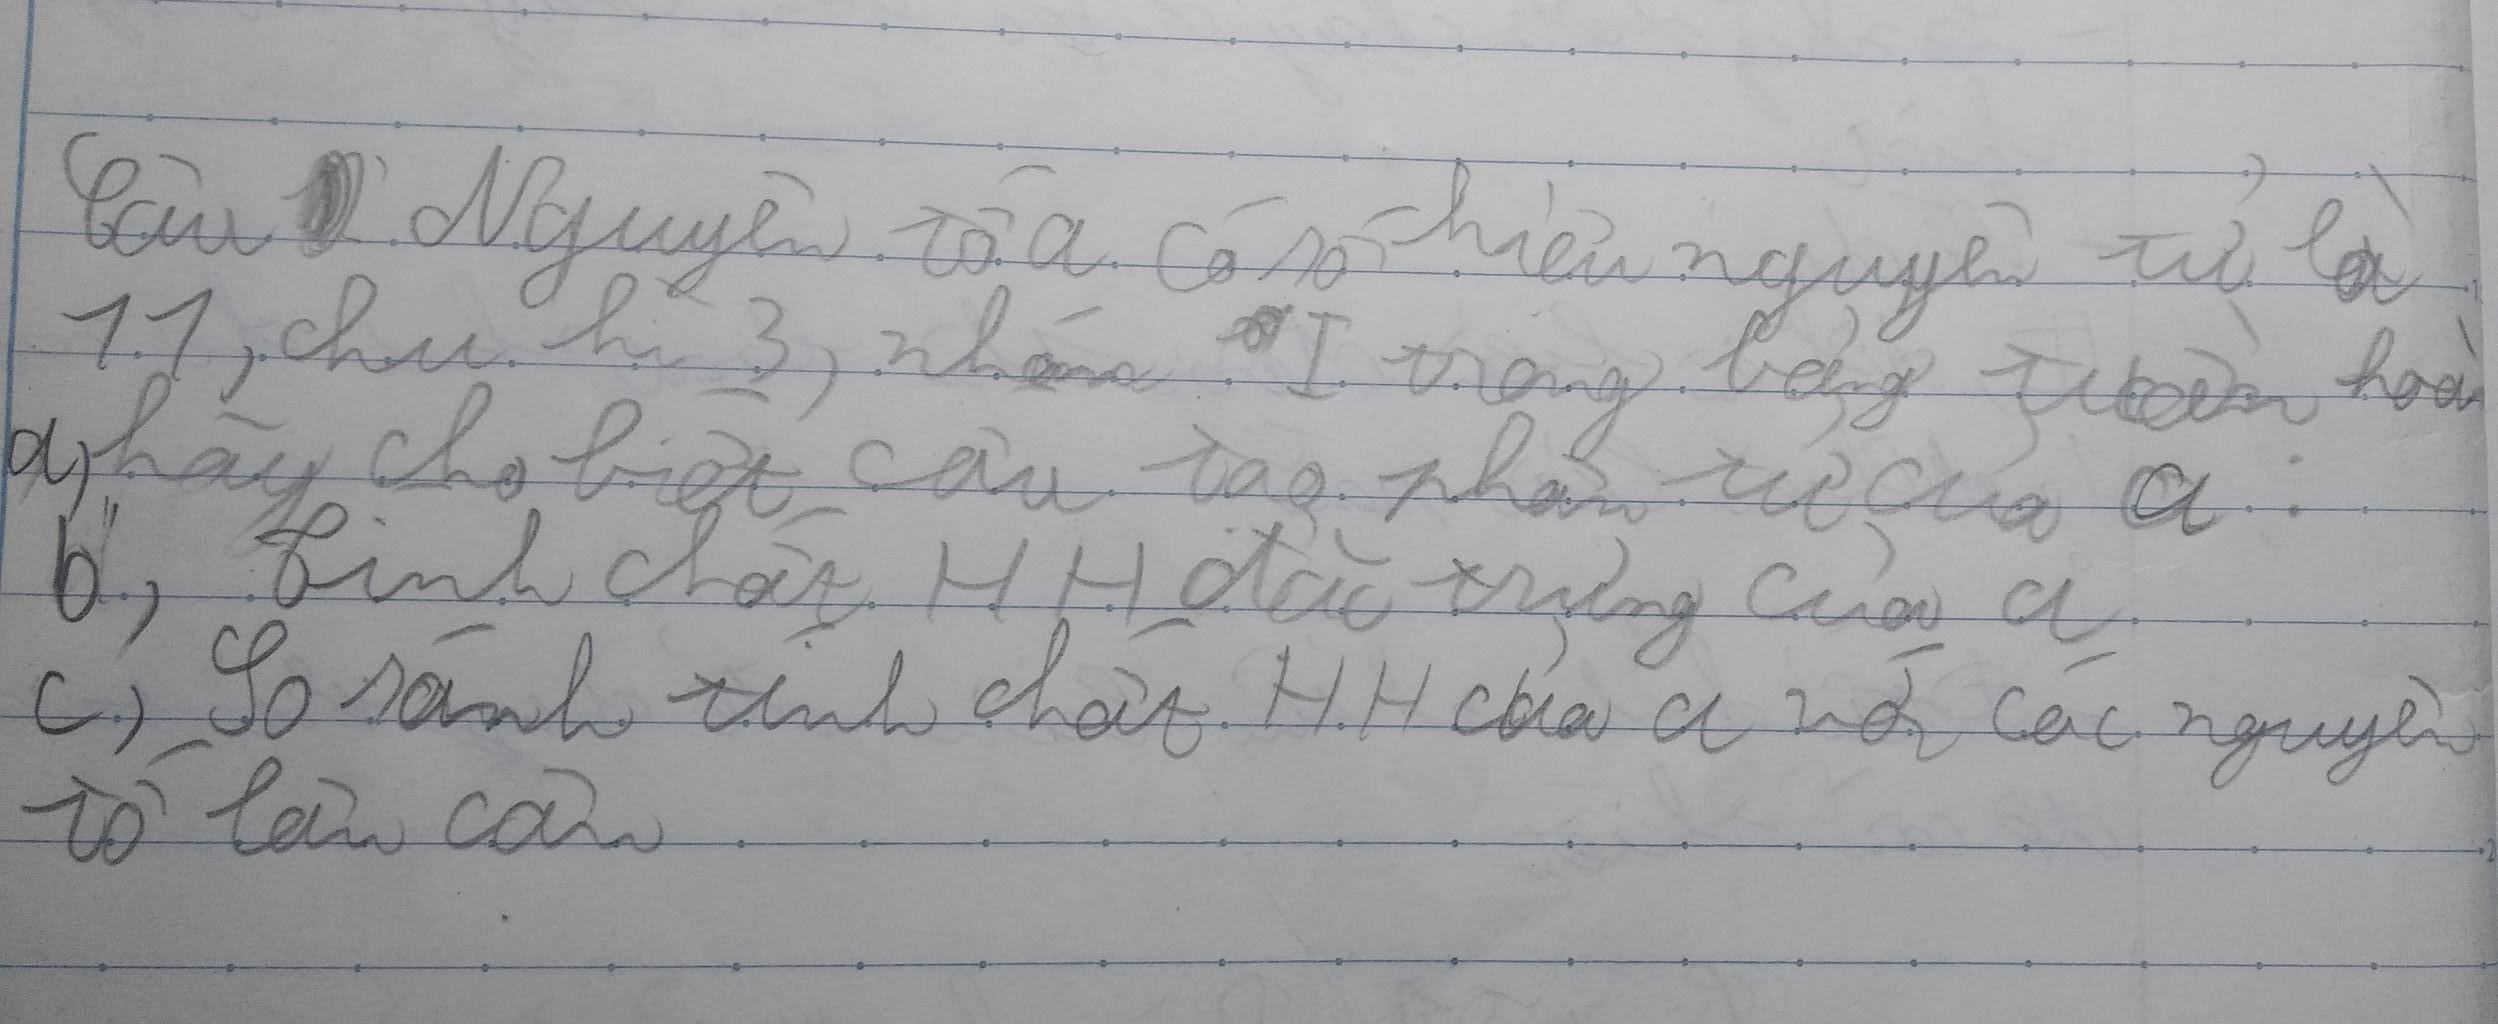 Câu Nguyên tố A có số hiệu nguyên tử là
11, chu kì 3, nhóm I trong bảng tuần hoàn
a, hãy cho biết cấu tạo phân tử của A:
b, Tính chất HH đặc trưng của A
c, So sánh tính chất HH của A với các nguyên
tố lân cận